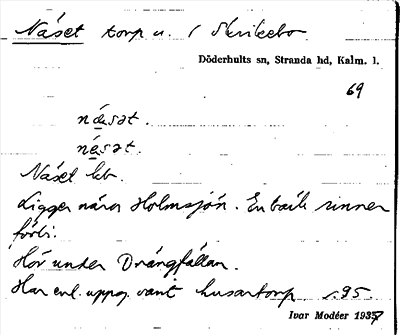 Näset torp u. Skrikebo
Döderhults sn, Stranda hd, Kalm. l.
69
näsət.
nesət.
Näset kb.
Ligger nära Holmsjön. En bäck rinner
förbi.
Hör under Drängfällan.
Har enl. uppg. varit husartorp s. 95.
Ivar Modéer 1937